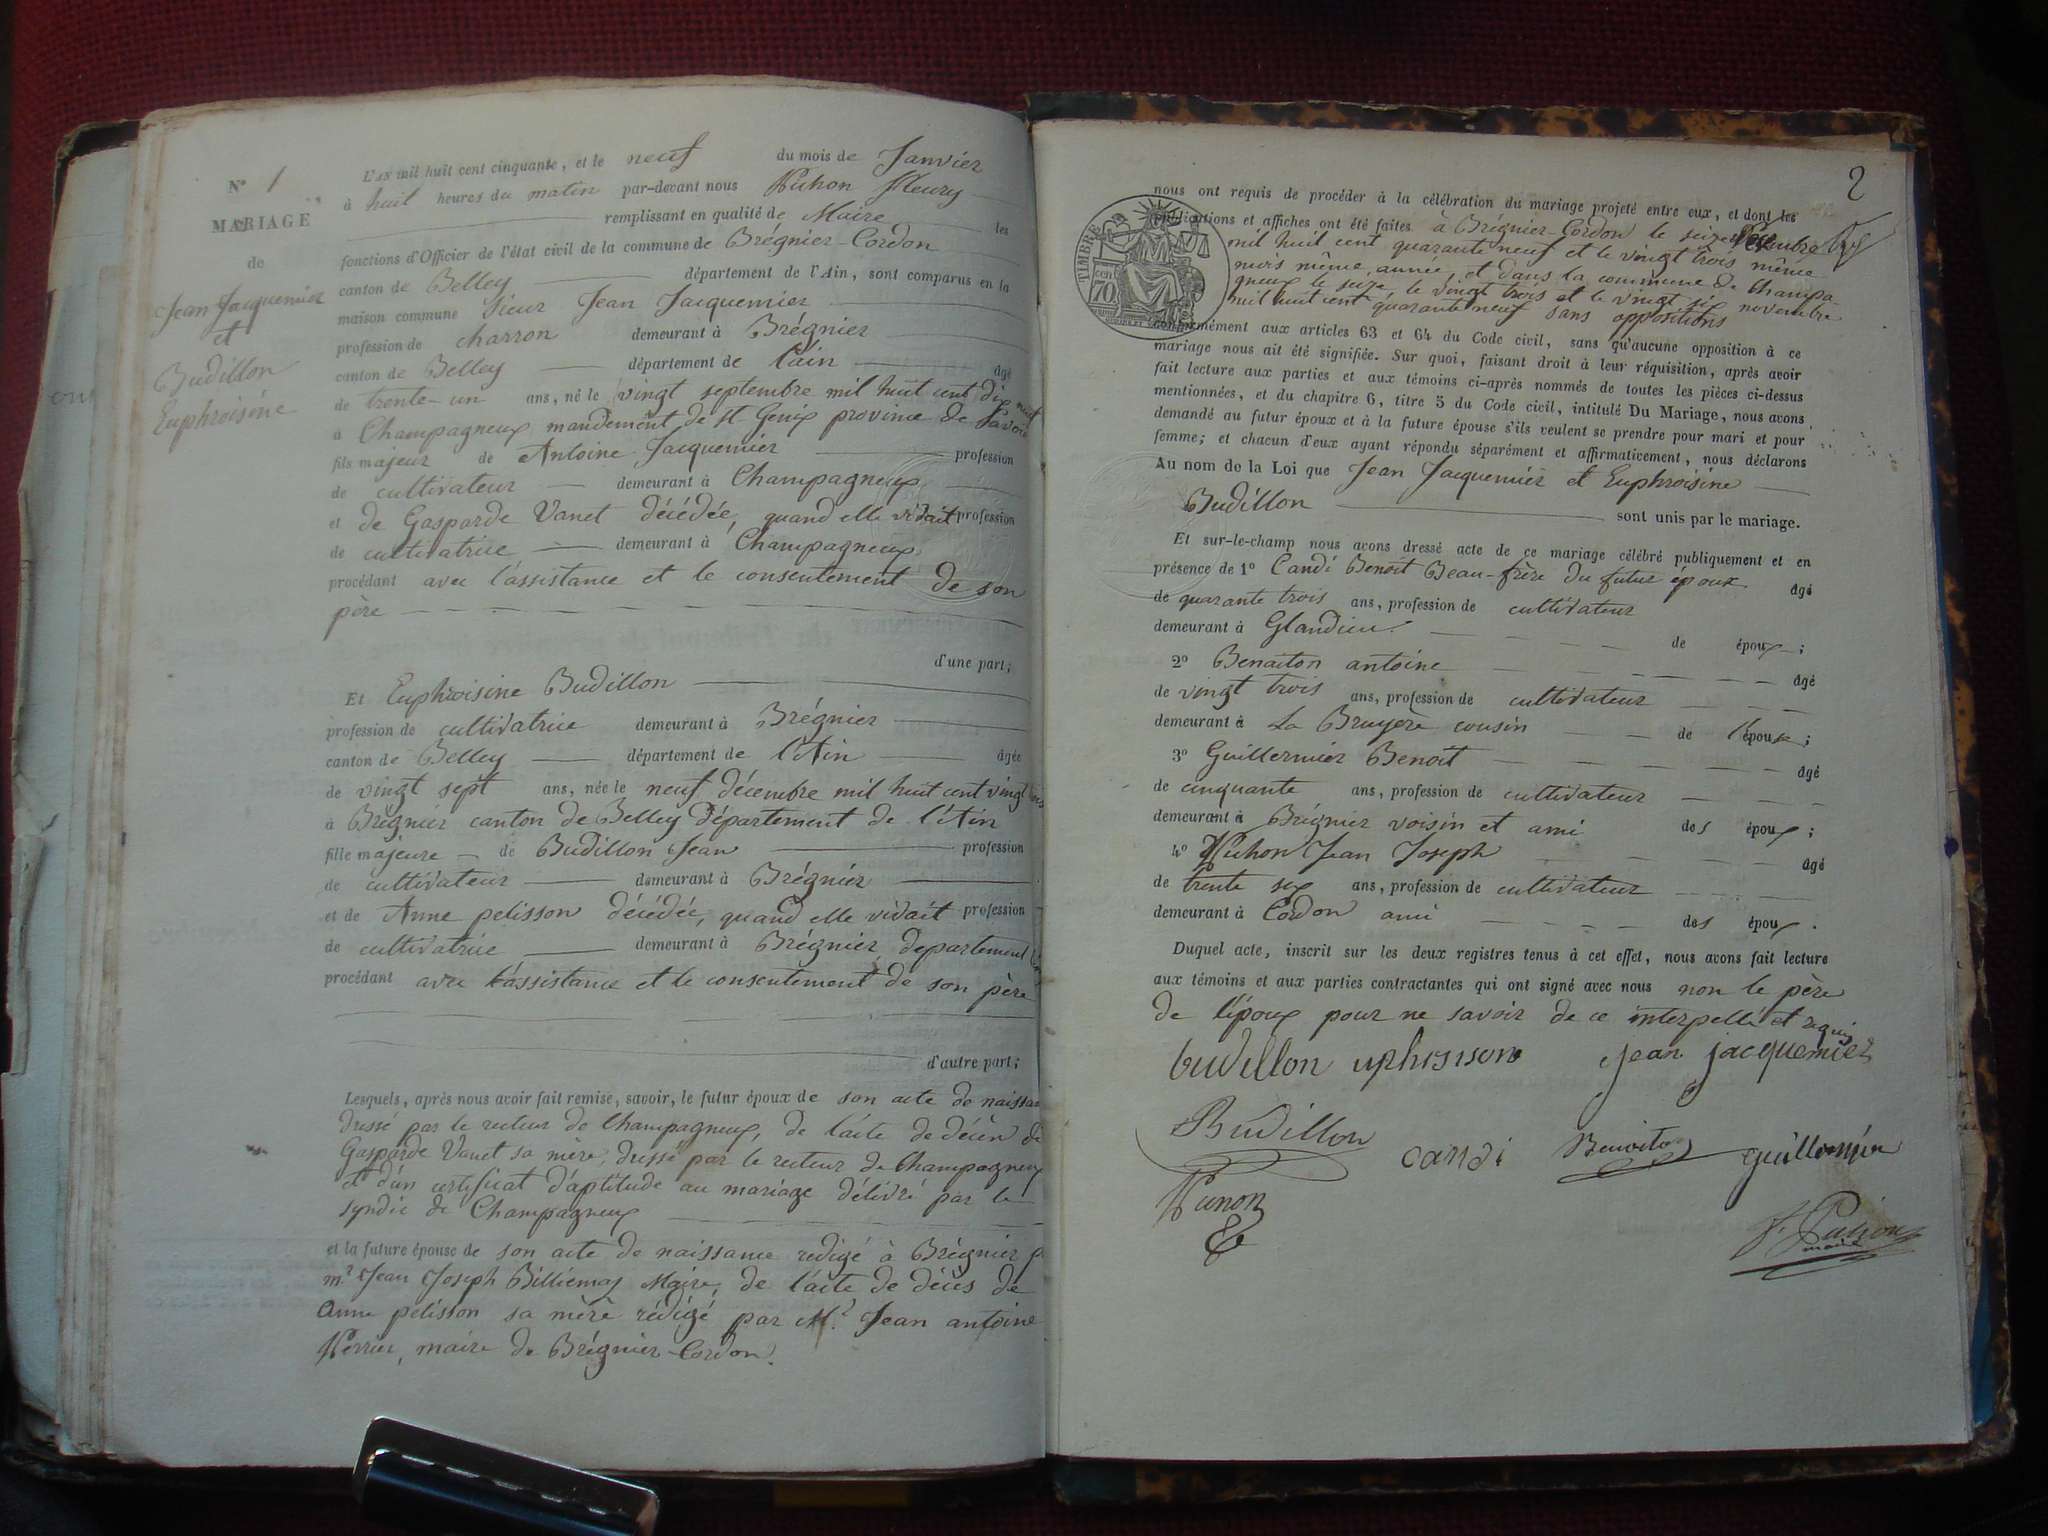 N° 1
MARIAGE
de
Jean Jacquemier
et
Budillon
Euphroisine
L'AN mil huit cent cinquante, et le neuf du mois de Janvier
à huit heures du matin par-devant nous Fleury
remplissant en qualité de Maire les
fonctions d'Officier de l'état civil de la commune de Brégnier-Cordon
canton de Belley département de l'Ain, sont comparus en la
maison commune Sieur Jean Jacquemier
profession de charron demeurant à Brégnier
canton de Belley département de l'ain âgé
de trente-un ans, né le vingt septembre mil huit cent dix huit
à Champagneux mandement de St Genix province de Savoie
fils majeur de Antoine Jacquemier profession
de cultivateur demeurant à Champagneux
et de Gasparde Vanet décédée, quand elle vivait profession
de cultivatrice demeurant à Champagneux
procédant avec l'assistance et le consentement de son
père
d'une part;
Et Euphroisine Budillon
profession de cultivatrice demeurant à Brégnier
canton de Belley département de l'Ain âgée
de vingt sept ans, née le neuf décembre mil huit cent vingt
à Brégnier canton de Belley Département de l'Ain
fille majeure de Budillon Jean profession
de cultivateur demeurant à Brégnier
et de Anne pelisson décédée, quand elle vivait profession
de cultivatrice demeurant à Brégnier, departement
procédant avec l'assistance et le consentement de son père
d'autre part;
Lesquels, après nous avoir fait remise, savoir, le futur époux de son acte de naissan
dressé par le recteur de Champagneux, de l'acte de décès de
Gasparde Vanet sa mère, dressé par le recteur de Champagneux
et d'un certificat d'aptitude au mariage délivré par le
syndic de Champagneux
et la future épouse de son acte de naissance redigé à Brégnier p
mr Jean Joseph Billiemaz Maire, de l'acte de décès de
Anne pelisson sa mère rédigé par Mr Jean antoine
Perrier, maire de Brégnier-Cordon.
2
nous ont requis de procéder à la célébration du mariage projeté entre eux, et dont les
publications et affiches ont été faites à Brégnier Cordon le seize
mil huit cent quarante neuf et le vingt trois même
mois même année, et dans la commune de Champa-
gneux le seize, le vingt trois et le vingt six novembre
mil huit cent quarante neuf sans oppositions
TIMBRE
70 cen
conformément aux articles 63 et 64 du Code civil, sans qu'aucune opposition à ce
mariage nous ait été signifiée. Sur quoi, faisant droit à leur réquisition, après avoir
fait lecture aux parties et aux témoins ci-après nommés de toutes les pièces ci-dessus
mentionnées, et du chapitre 6, titre 5 du Code civil, intitulé Du Mariage, nous avons
demandé au futur époux et à la future épouse s'ils veulent se prendre pour mari et pour
femme; et chacun d'eux ayant répondu séparément et affirmativement, nous déclarons
Au nom de la Loi que Jean Jacquemier et Euphroisine
Budillon sont unis par le mariage.
Et sur-le-champ nous avons dressé acte de ce mariage célébré publiquement et en
présence de 1° Candi Benoit Beau-frère du futur epoux âgé
de quarante trois ans, profession de cultivateur
demeurant à Glandieu de époux;
2° Benaiton antoine âgé
de vingt trois ans, profession de cultivateur
demeurant à La Bruyère cousin de l'époux;
3° Guillermier Benoit âgé
de cinquante ans, profession de cultivateur
demeurant à Brégnier voisin et ami des époux;
4° Jean Joseph âgé
de trente six ans, profession de cultivateur
demeurant à Cordon ami des époux.
Duquel acte, inscrit sur les deux registres tenus à cet effet, nous avons fait lecture
aux témoins et aux parties contractantes qui ont signé avec nous non le père
de l'époux pour ne savoir de ce interpellé et requis
budillon uphrosison Jean jacquemier
Budillon candi Benoiton guillermier
maire